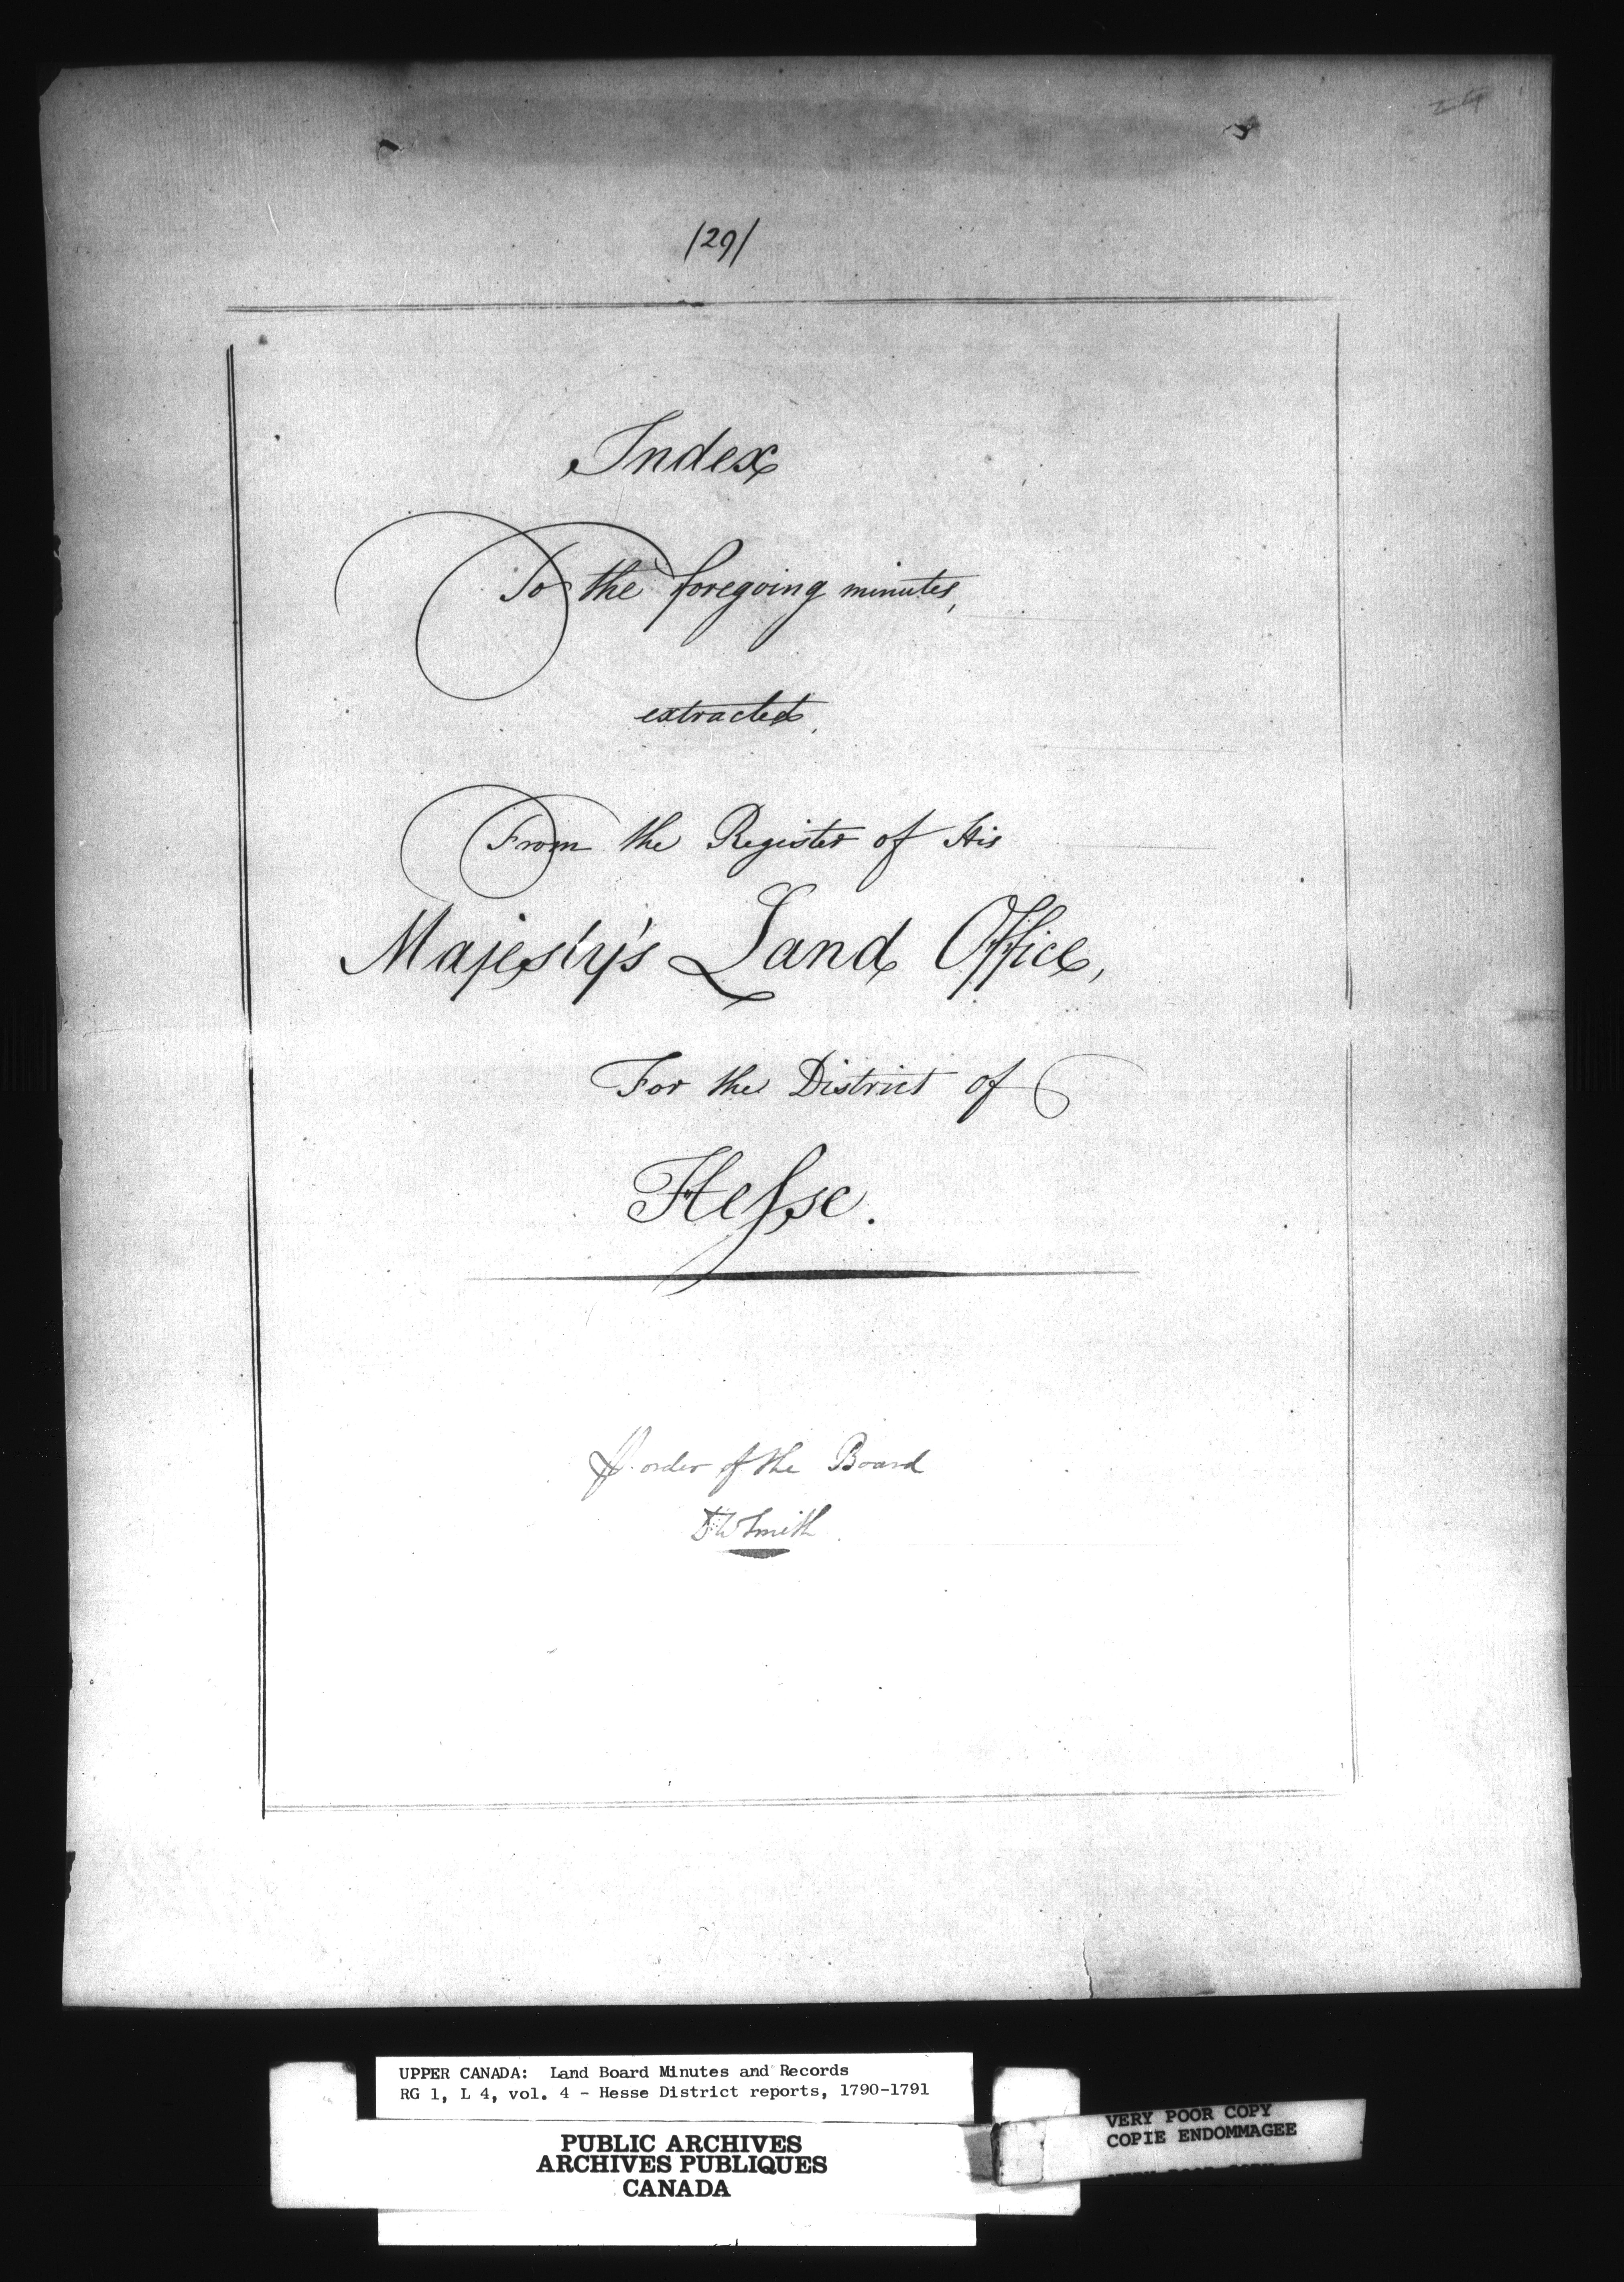 /29/
Index
To the foregoing minutes,
extracted,
From the Register of His
Majesty's Land Office,
For the District of
Hesse.
P. order of the Board
DW Smith
UPPER CANADA: Land Board Minutes and Records
RG 1, L 4, vol. 4 - Hesse District reports, 1790-1791
PUBLIC ARCHIVES
ARCHIVES PUBLIQUES
CANADA
VERY POOR COPY
COPIE ENDOMMAGEE